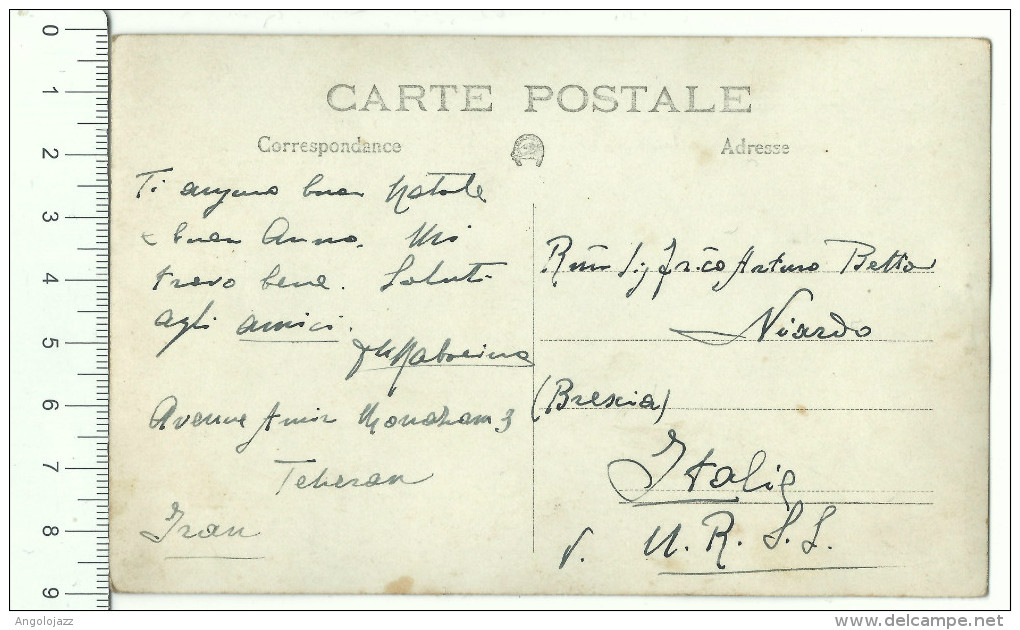 0
1
2
3
4
5
6
7
8
9
CARTE POSTALE
Correspondance
Adresse
Ti auguro buon Natale
e buon Anno. Mi
trovo bene. Saluti
agli amici.
Avenue Amir 3
Teheran
Iran
Sig. Arturo Betta
(Brescia)
Italie
V. U.R.S.S.
Angolojazz
www.delcampe.net